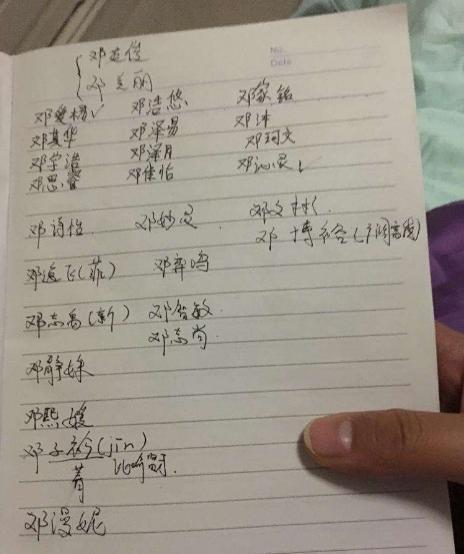 邓英俊
No.
Date
邓美丽
邓爱杨 邓浩悠 邓家铭
邓其华 邓泽易 邓沐
邓宇浩 邓泽月 邓珂文
邓思睿 邓佳怡 邓沁灵
邓诗怡 邓妙灵 邓文彬
邓博
邓逸飞(菲) 邓弈鸣
邓志勇(新) 邓智敏
邓志尚
邓静姝
邓熙媛
邓子衿(jin)
菁
邓漫妮